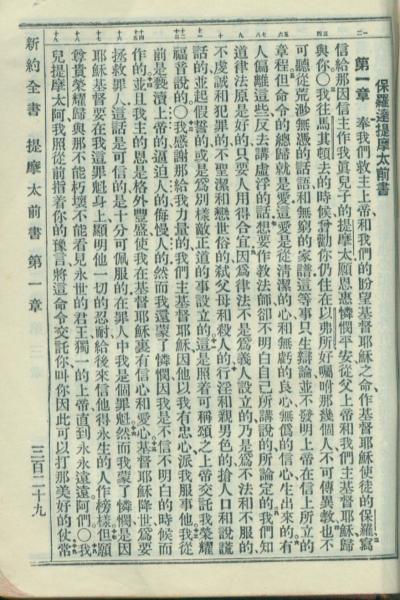 保羅達提摩太前書
第一章 奉我們救主上帝和我們的盼望基督耶穌之命作基督耶穌使徒的保羅寫
信給那因信主作我眞兒子的提摩太願恩惠憐憫平安從父上帝和我們主基督耶穌歸
與你○我往馬其頓去的時候曾勸你仍住在以弗所好囑咐那幾個人不可傳異教也不
可聽從荒渺無憑的話語和無窮的家譜這等事只生辯論並不發明上帝在信上所立的
章程但命令的總歸就是愛這愛是從清潔的心和無虧的良心無僞的信心生出來的有
人偏離這些反去講虛浮的話想要作教法師卻不明白自己所講說的所論定的我們知
道律法原是好的只要人用得合宜因爲律法不是爲義人設立的乃是爲不法和不服的
不虔誠和犯罪的不聖潔和戀世俗的弒父母和殺人的行淫和親男色的搶人口和說謊
話的並起假誓的或是爲別樣敵正道的事設立的這是照着可稱頌之上帝交託我榮耀
福音說的○我感謝那給我力量的我們主基督耶穌因他以我有忠心派我服事他我從
前是褻瀆上帝的逼迫人的侮慢人的然而我還蒙了憐憫因我是不信不明白的時候而
作的並且我主的恩是格外豐盛使我在基督耶穌裏有信心和愛心基督耶穌降世爲要
拯救罪人這話是可信的是十分可佩服的在罪人中我是個罪魁然而我蒙了憐憫是因
耶穌基督要在我這罪魁身上顯明他一切的忍耐給後來信他得永生的人作榜樣但願
尊貴榮耀歸與那不能朽壞不能看見永世的君王獨一的上帝直到永永遠遠阿們○我
兒提摩太阿我照從前指着你的豫言將這命令交託你叫你因此可以打那美好的仗常
新約全書 提摩太前書 第一章 三百二十九